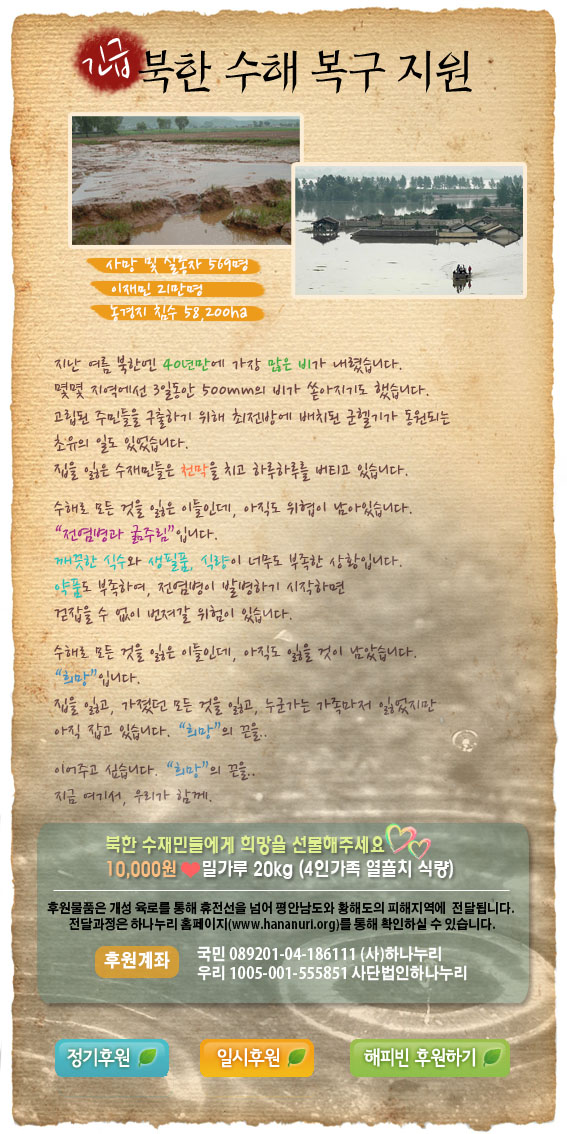 긴급 북한 수해 복구 지원
사망 및 실종자 569명
이재민 21만명
농경지 침수 58,200ha
지난 여름 북한엔 40년만에 가장 많은 비가 내렸습니다.
몇몇 지역에선 3일동안 500mm의 비가 쏟아지기도 했습니다.
고립된 주민들을 구출하기 위해 최전방에 배치된 군헬기가 동원되는
초유의 일도 있었습니다.
집을 잃은 수재민들은 천막을 치고 하루하루를 버티고 있습니다.
수해로 모든 것을 잃은 이들인데, 아직도 위협이 남아있습니다.
“전염병과 굶주림”입니다.
깨끗한 식수와 생필품, 식량이 너무도 부족한 상황입니다.
약품도 부족하여, 전염병이 발병하기 시작하면
걷잡을 수 없이 번져갈 위험이 있습니다.
수해로 모든 것을 잃은 이들인데, 아직도 잃을 것이 남았습니다.
“희망”입니다.
집을 잃고, 가졌던 모든 것을 잃고, 누군가는 가족마저 잃었지만
아직 잡고 있습니다. “희망”의 끈을..
이어주고 싶습니다. “희망”의 끈을..
지금 여기서, 우리가 함께.
북한 수재민들에게 희망을 선물해주세요
10,000원 ❤ 밀가루 20kg (4인가족 열흘치 식량)
후원물품은 개성 육로를 통해 휴전선을 넘어 평안남도와 황해도의 피해지역에 전달됩니다.
전달과정은 하나누리 홈페이지(www.hananuri.org)를 통해 확인하실 수 있습니다.
후원계좌
국민 089201-04-186111 (사)하나누리
우리 1005-001-555851 사단법인하나누리
정기후원 일시후원 해피빈 후원하기